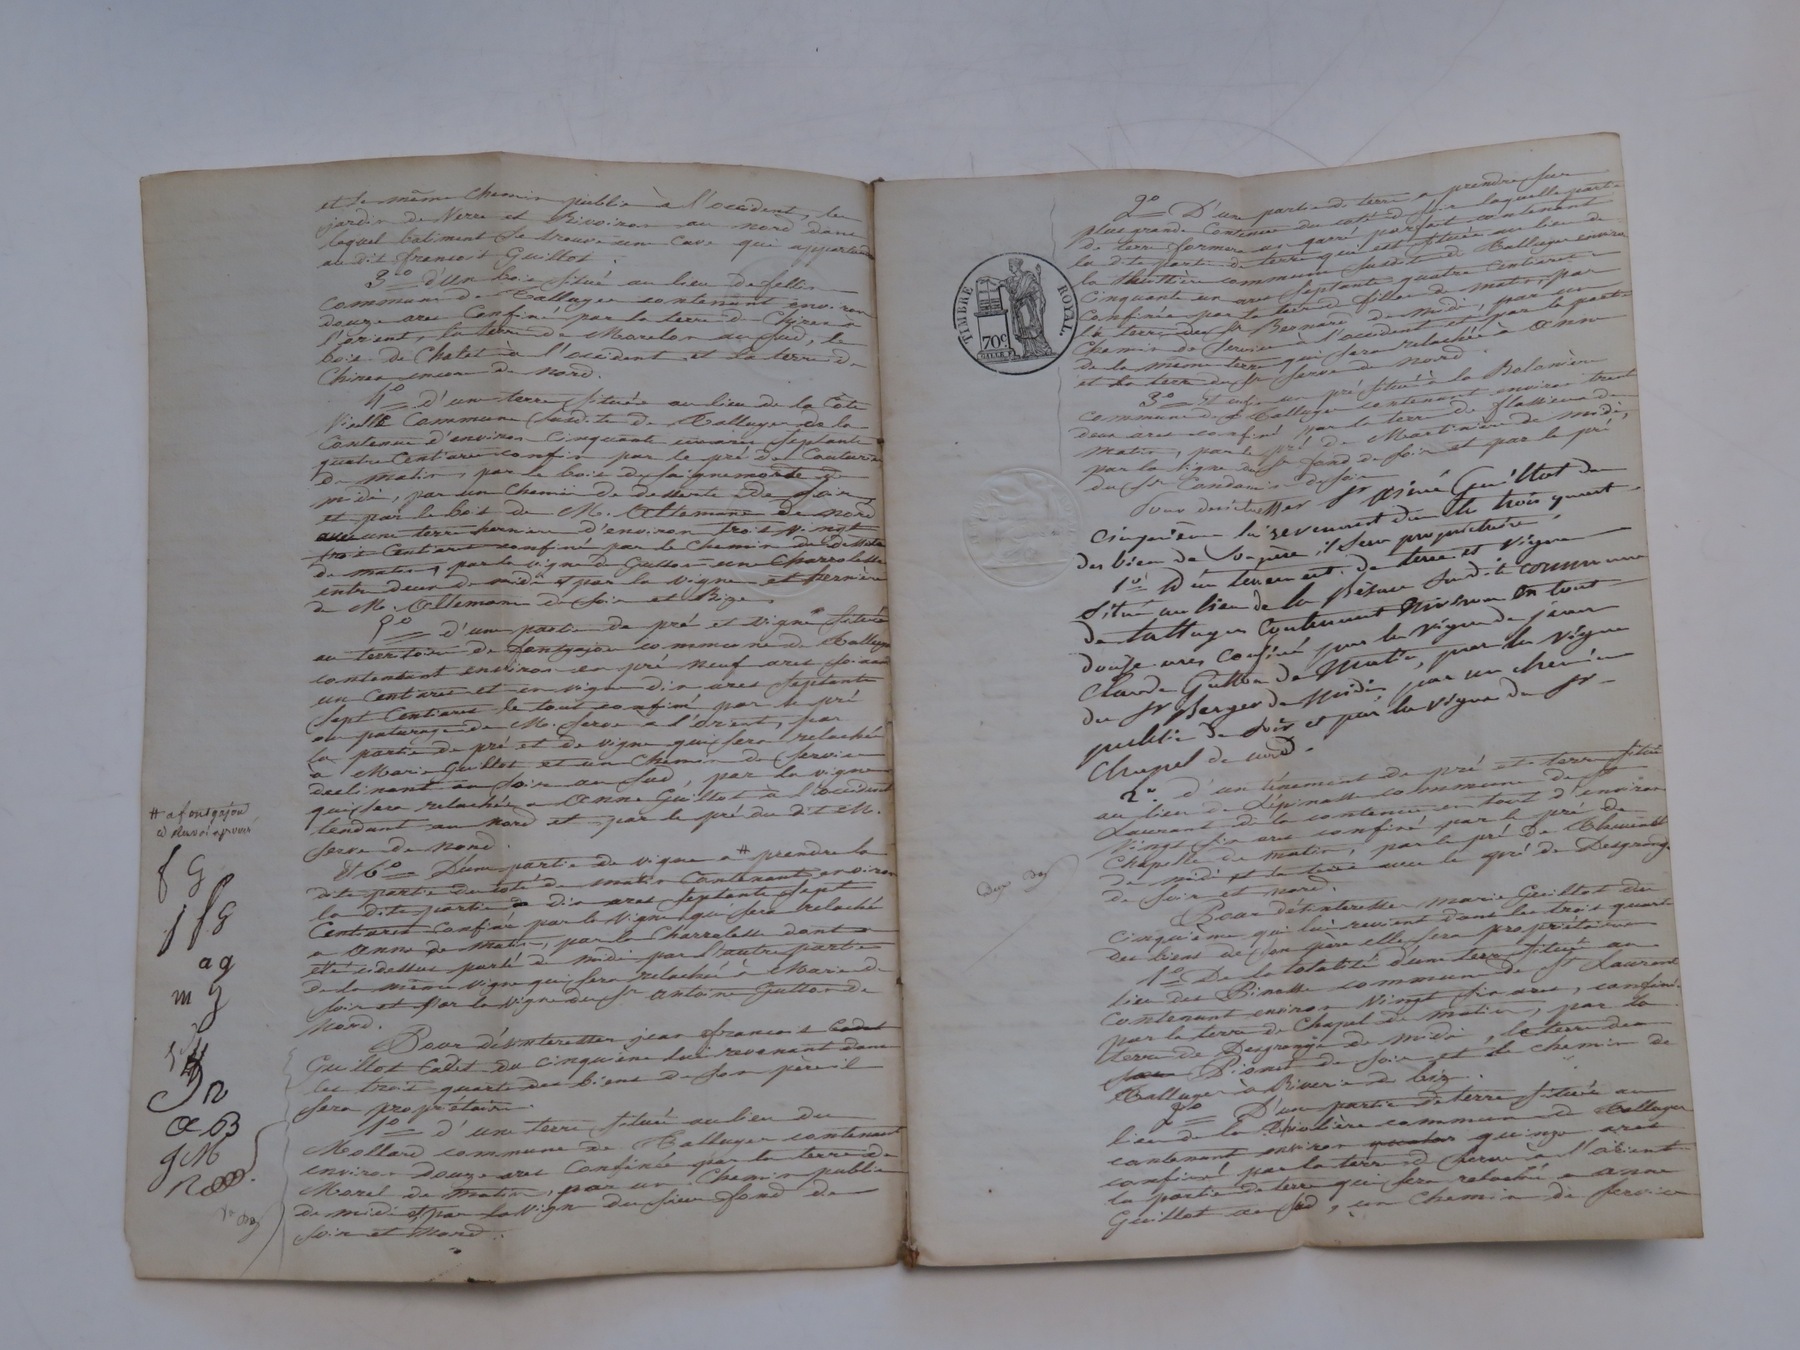 et le même chemin public à l'occident, le
jardin de Verre et Rivoiron au nord dans
lequel batiment se trouve une cave qui appartien
au dit francois Guillot.
3.° d'un bois situé au lieu de
commune de Talluyer contenant environ
douze ares confiné par la terre de Chirer
l'orient, la terre de Morelon au sud, le
bois de Chatel à l'occident et la terre de
Chirer encore de nord.
4.° d'une terre située au lieu de la Côte
Vieille commune susdite de Talluyer de la
contenue d'environ cinquante un ares septante
quatre centiares confin par le pré de Couturier
de matin, par le bois de
midi, par un chemin de desserte de soir,
et par le bois de M. Allemane de nord
avec une terre d'environ trois vingt
trois centiares confiné par le chemin de desserte
de matin, par la vigne de Gutton une charrolette
entre deux de midi et par la vigne et
de M. Allemane de soir et Bize.
5.° d'une partie de pré et vigne située
au territoire de fontgajou commune de Talluyer
contenant environ en pré neuf ares soixante
un centiares et en vigne dix ares septante
sept centiares le tout confiné par le pré
ou paturage de M. Serve à l'orient, par
la partie de pré et de vigne qui sera relachée
à Marie Guillot et un chemin de service
declinant au soir au sud, par la vigne
qui sera relachée a Anne Guillot à l'occident
tendant au nord et par le pré du dit M.
Serve de nord.
Et 6.° D'une partie de vigne a # prendre la
dite partie du coté de matin contenant environ
la dite partie de dix ares septante sept
centiares confiné par la vigne qui sera relaché
a Anne de matin, par la Charrolette dont
est cidessus parlé de midi par l'autre partie
de la même vigne qui sera relachée à Marie de
soir et par la vigne du Sr Antoine Gutton de
nord.
Pour désinteresser jean francois Cadet
Guillot Cadet du cinquième lui revenant dans
les trois quarts des biens de son père il
sera propriétaire
1.° d'une terre située au lieu du
Mollard commune de Talluyer contenant
environ douze ares confinée par la terre de
Morel de matin, par un chemin public
de midi et par la vigne du sieur fond de
soir et nord.
# a fontgajou
f G
j f G
a g
m g
a B
g M
2.° D'une partie de terre a prendre sur
plus grande contenue du coté de soir laquelle partie
de terre formera un quarré parfait contenant
la dite partie de terre qui est située au lieu de
la commune susdit de Talluyer environ
cinquante un ares septante quatre centiares
confinée par la terre de de matin, par
la terre du Sr Bernard de midi, par un
chemin de service à l'occident et par la partie
de la même terre qui sera relachée à Anne
et la terre du Sr Serve de nord.
3.° Et enfin un pré situé à la
commune de Talluyer contenant environ trente
deux ares confiné par la terre de de
matin, par le pré de Martinière de midi,
par la vigne du Sr fond de soir et par le pré
du Sr Condamin de soir
TIMBRE ROYAL
70c.
Pour désintéresser Sr aimé Guillot du
cinquième lui revenant du les trois quart
des bien de Son père, il sera propriétaire,
1.° D'un tènement de terre et vigne
situé au lieu de la Susdite commune
de talluyer contenant environ en tout
douze ares confiné par la vigne de jean
Claude Gutton de Matin, par la vigne
du Sr Berger de Midi, par un chemin
public de Soir et par la vigne du Sr
Chapel de nord.
2.° d'un tènement de pré et terre situé
au lieu de Lépinasse commune de St
Laurent de la contenue en tout d'environ
vingt six ares confiné par le pré de
Chapelle de matin, par le pré de
de midi et la terre avec le pré de Desgrange
de soir et nord.
Pour désinteresser Marie Guillot du
cinquième qui lui revient dans les trois quart
des biens de son père elle sera propriétaire
1.° De la totalité d'une terre située au
lieu des Pinasse commune de St Laurent
contenant environ vingt six ares, confiné
par la terre de Chapel de matin, par la
terre de Desgrange de midi, la terre de
Pionet de soir et le chemin de
Talluyer à Riverie de biz.
2.° D'une partie de terre située au
lieu de la commune de Talluyer
contenant environ quatre quinze ares
confiné par la terre de Serve à l'orient
la partie de terre qui sera relachée a Anne
Guillot au sud, un chemin de service